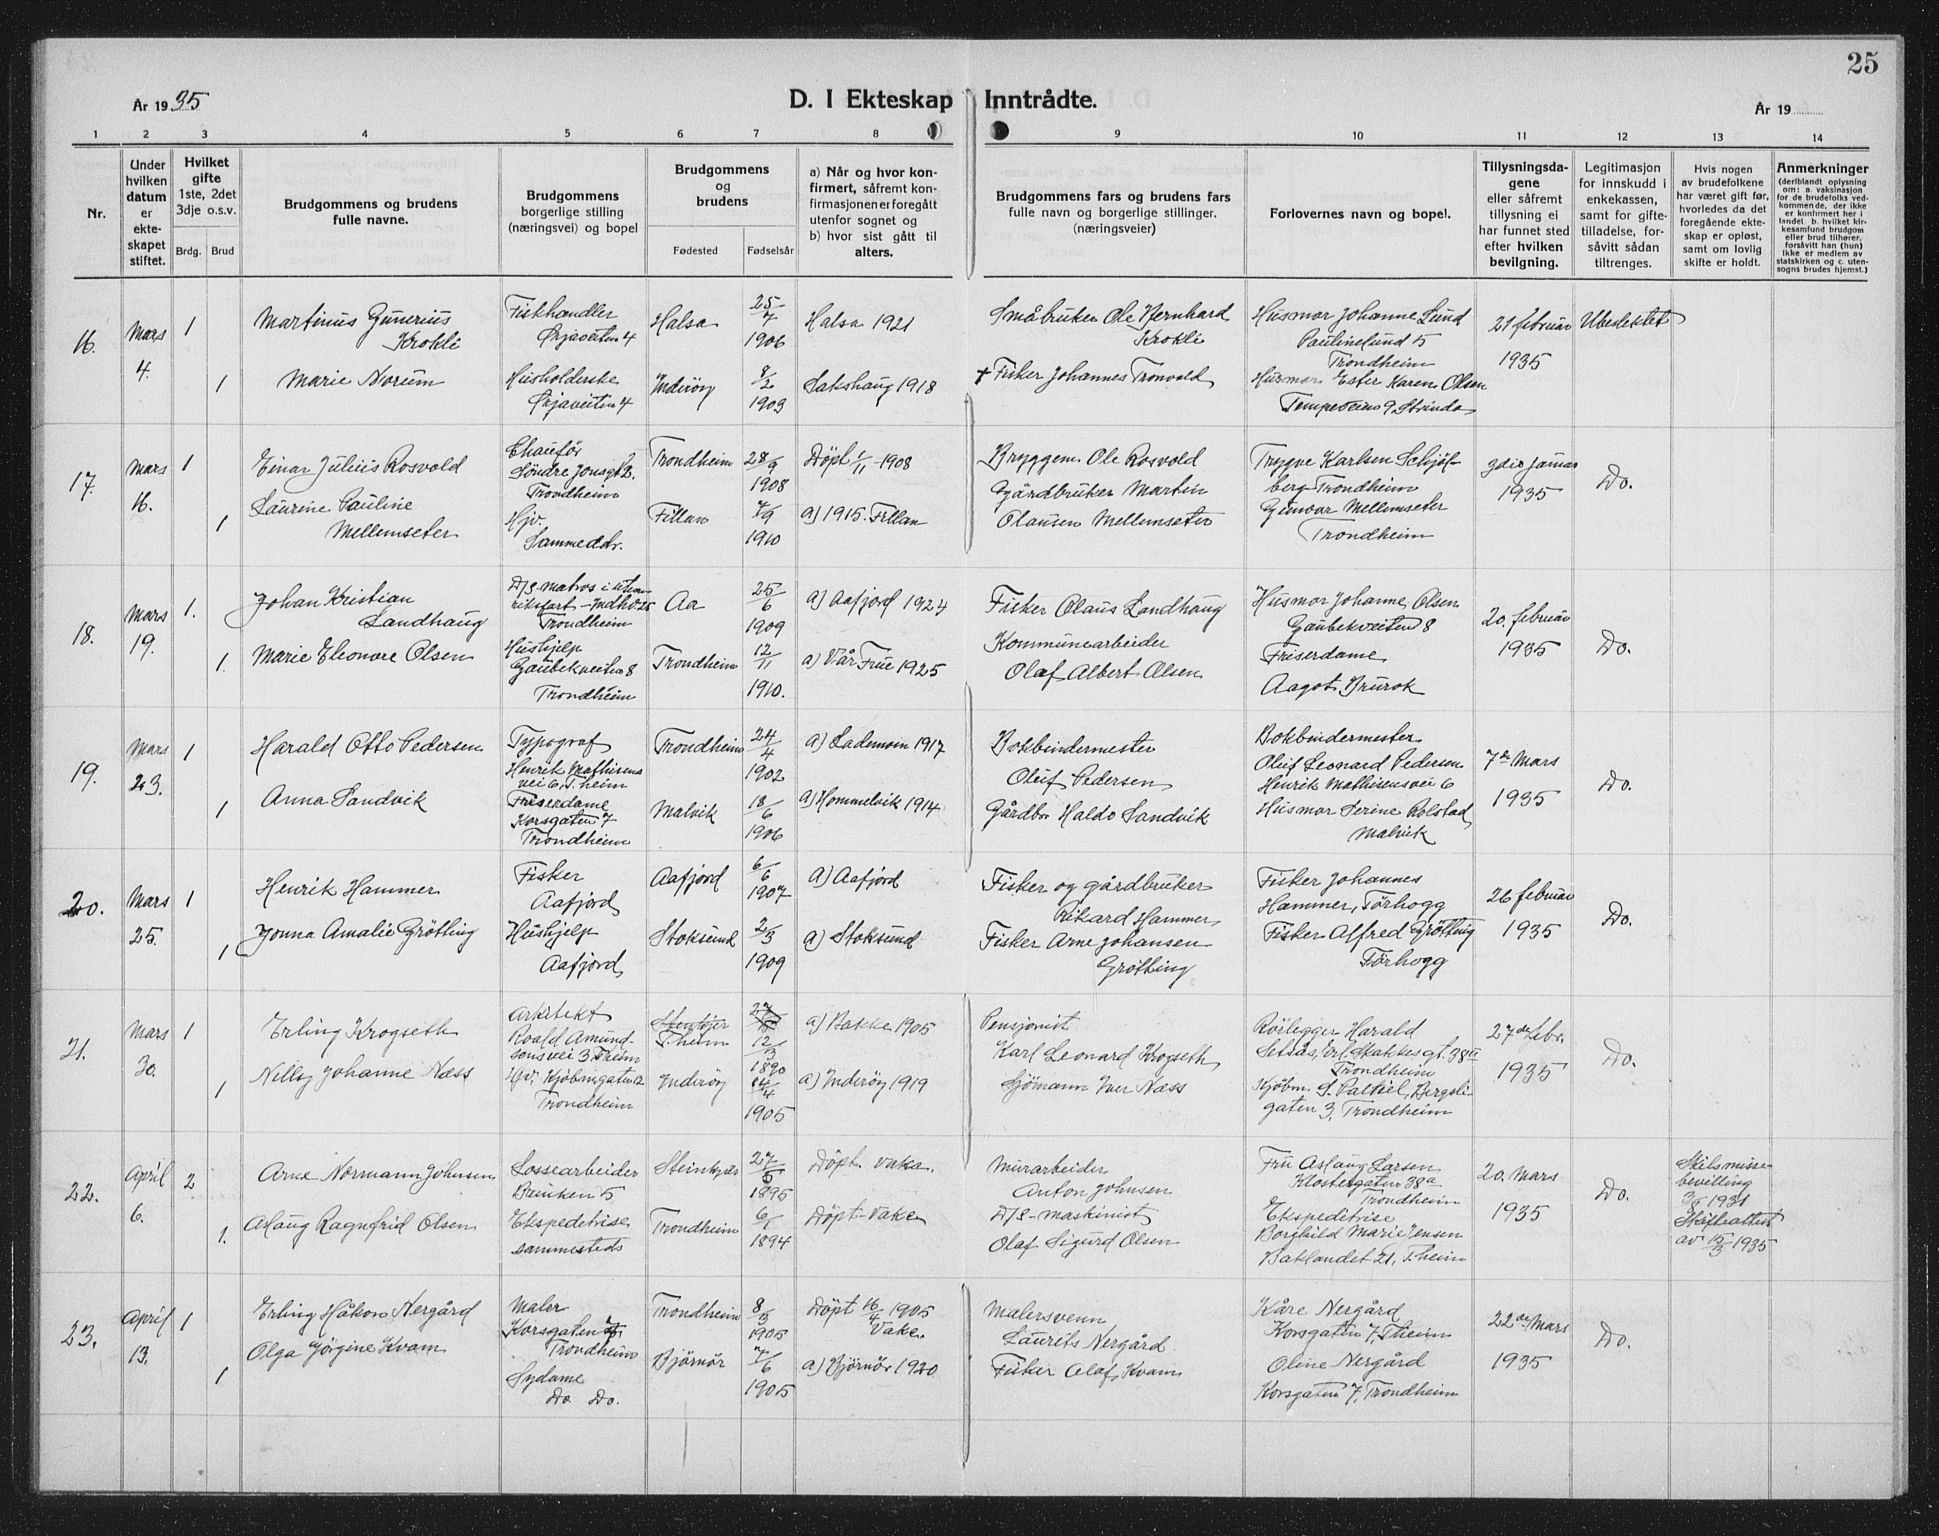 25
År 1935
D. I Ekteskap Inntrådte.
År 19
1 2 3 4 5 6 7 8 9 10 11 12 13 14
Nr.
Under hvilken datum er ekteskapet stiftet.
Hvilket gifte 1ste, 2det 3dje o.s.v.
Brdg. Brud
Brudgommens og brudens fulle navne.
Brudgommens borgerlige stilling (næringsvei) og bopel
Brudgommens og brudens
Fødested Fødselsår
a) Når og hvor konfirmert, såfremt konfirmasjonen er foregått utenfor sognet og b) hvor sist gått til alters.
Brudgommens fars og brudens fars fulle navn og borgerlige stillinger. (næringsveier)
Forlovernes navn og bopel.
Tillysningsdagene eller såfremt tillysning ei har funnet sted efter hvilken bevilgning.
Legitimasjon for innskudd i enkekassen, samt for giftetilladelse, forsåvitt sådan tiltrenges.
Hvis nogen av brudefolkene har været gift før, hvorledes da det foregående ekteskap er opløst, samt om lovlig skifte er holdt.
Anmerkninger (deriblandt oplysning om: a. vaksinasjon for de brudefolks vedkommende, der ikke er konfirmert her i landet b. hvilket kirkesamfund brudgom eller brud tilhører, forsåvitt han (hun) ikke er medlem av statskirken og c. utensogns brudes hjemst.)
16. Mars 4. 1
Martinus Gunerius Krokli
Fiskhandler Ørjaveiten 4
Halsa 25/7 1906
Halsa 1921
Småbruker Ole Bernhard Krokli
Husmor Johanne Lund Paulinelund 5 Trondheim
21 februar 1935
Ubesluttet
1 Marie Norum
Husholderske Ørjaveiten 4
Inderøy 8/2 1903
Sakshaug 1918
+ Fisker Johannes Tronvold
Husmor Ester Karen Olsen Tempeveien 9, Strinda
17. Mars 16. 1
Einar Julius Rosvold
Chauffør Søndre Jonsgt 2. Trondheim
Trondheim 28/9 1908
Døpt 1/11 1908
Bryggem. Ole Rosvold
Trygve Karlsen Schjølberg Trondheim
januar 1935
Do.
1 Laurine Pauline Mellemseter
Hjv. Samme adr.
Fillan 1910
a) 1915. Fillan
Gårdbruker Martin Olausen Mellemseter
Gunvor Mellemseter Trondheim
18. Mars 19. 1.
Johan Kristian Landhaug
D/S matros i utenriksfart Trondheim
Aa 25/6 1909
a) Aafjord 1924
Fisker Olaus Landhaug
Husmor Johanne Olsen Gaubekveiten 8
20. februar 1935
Do.
1. Marie Eleonore Olsen
Hushjelp Gaubekveiten 8 Trondheim
Trondheim 12/11 1910.
a) Vår Frue 1925
Kommunearbeider Olaf Albert Olsen
Friserdame Aagot Brurok
19. Mars 23. 1
Harald Otto Pedersen
Typograf Henrik Mathisens vei 6, T.heim
Trondheim 24/4 1902
a) Lademoen 1917
Bokbindermester Oluf Pedersen
Bokbindermester Oluf Leonard Pedersen Henrik Mathisensvei 6
7de Mars 1935
Do.
1 Anna Sandvik
Friserdame Korsgaten 7 Trondheim
Malvik 18/6 1906
a) Hommelvik 1914
Gårdbr Haldo Sandvik
Husmor Serine Rolstad Malvik
20. Mars 25. 1
Henrik Hammer
Fisker Aafjord
Aafjord 6/6 1907
a) Aafjord
Fisker og gårdbruker Rikard Hammer
Fisker Johannes Hammer, Tørhogg
26 februar 1935
Do.
1 Jonna Amalie Grøtting
Hushjelp Aafjord
Stoksund 2/3 1909
a) Stoksund
Fisker Arne Johansen Grøtting
Fisker Alfred Grøtting Tørhogg
21. Mars 30. 1
Erling Krogseth
Arkitekt Roald Amundsensvei 3 T.heim
T.heim 12/3 1890
a) Bakke 1905
Pensjonist Karl Leonard Krogseth
Rørlegger Harald Setsås, Erl. Skakkes gt. 38 II Trondheim
27de febr. 1935
Do.
1 Nelly Johanne Næss
Hjv. Kjøbmgaten 12 Trondheim
Inderøy 14/4 1905
a) Inderøy 1919
Sjømann Iver Næss
Kjøbm. S. Paltiel, Bergsligaten 3, Trondheim
22. April 6. 2
Arne Normann Johnsen
Lossearbeider Brinken 5
Steinkjer 27/6 1895
Døpt. Vake.
Murarbeider Anton Johnsen
Fru Aslaug Larsen Klostergaten 38a Trondheim
20. Mars 1935
Do.
Skilsmisse bevilling 1931 Skifteattest av 15/3 1935
1. Aslaug Ragnfrid Olsen
Ekspeditrise sammesteds
Trondheim 6/1 1894
Døpt-Vake
D/S-maskinist Olaf Sigurd Olsen
Ekspeditrise Borghild Marie Jensen Baklandet 21, T.heim
23. April 13. 1
Erling Håkon Nergård
Maler Korsgaten 7 Trondheim
Trondheim 8/3 1905
Døpt 16/4 1905 Vake.
Malersvenn Laurits Nergård
Kåre Nergård Korsgaten 7, T.heim
22de Mars 1935
Do.
1 Olga Jørgine Kvam
Sydame Do Do.
Bjørnør 7/6 1905
a) Bjørnør 1920
Fisker Olaf Kvam
Oline Nergård Korsgaten 7, Trondheim